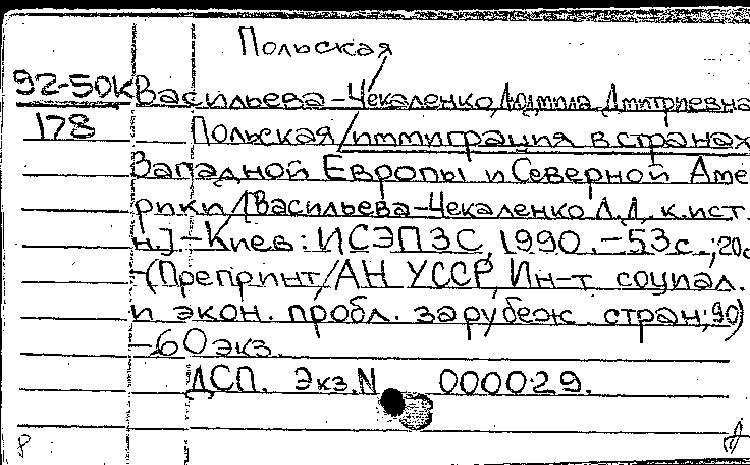 Польская
92-50к Васильева-Чекаленко, Людмила Дмитриевна
178 Польская иммиграция в странах
Западной Европы и Северной Аме
рики / [Васильева-Чекаленко Л.Д., к.ист.
н.]. - Киев: ИСЭПЗС, 1990. - 53с.; 20с
- (Препринт / АН УССР, Ин-т социал.
и экон. пробл. зарубеж. стран; 90)
- 60 экз.
ДСП. Экз. N 000029.